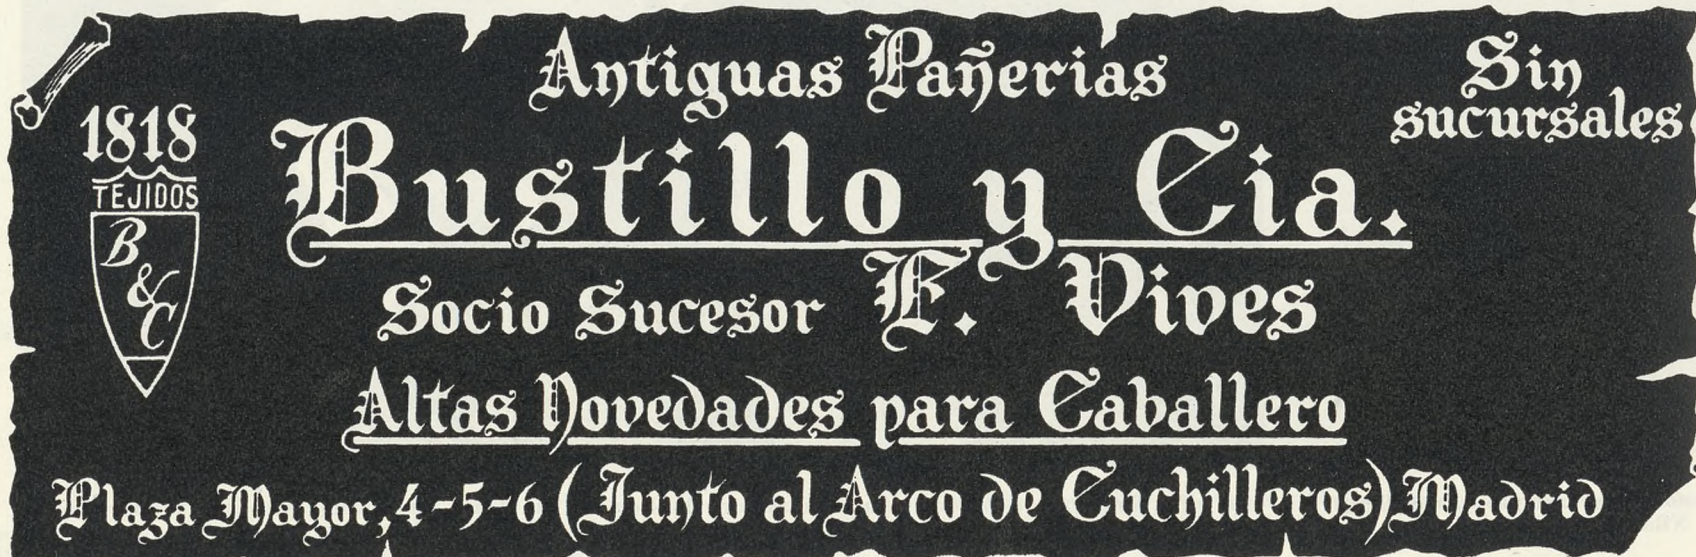 Antiguas Pañerias
Sin
sucursales
1818
TEJIDOS
B
&
C
Bustillo y Cia.
Socio Sucesor E. Vives
Altas Novedades para Caballero
Plaza Mayor, 4-5-6 (Junto al Arco de Cuchilleros) Madrid